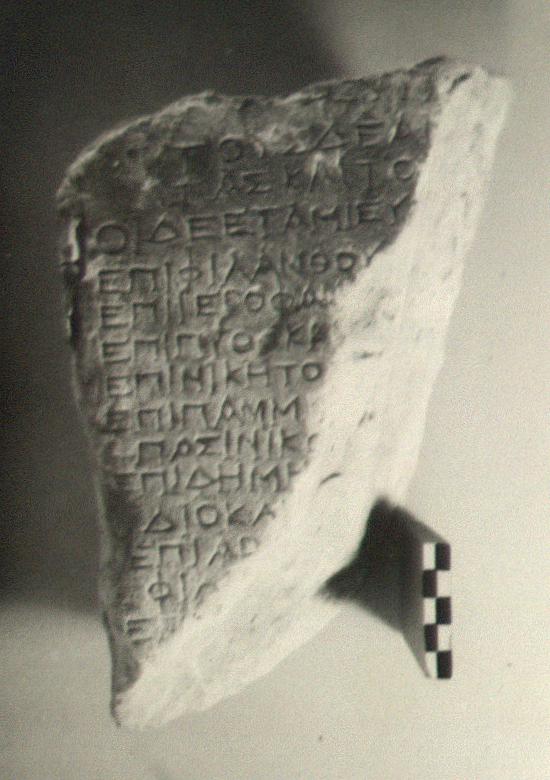 ΤΟΥΣΔΕΑ
ΤΑΣΚΑΙΤΟ
ΟΙΔΕΕΤΑΜΙΕΥ
ΕΠΙΦΙΛΑΝΘΟΥ
ΕΠΙΙΕΡΟΦΑ
ΕΠΙΠΥΘΟΚΡ
ΕΠΙΝΙΚΗΤΟ
ΕΠΙΠΑΜΜ
ΠΑΣΙΝΙΚΟ
ΕΠΙΔΗΜΗ
ΔΙΟΚΛ
ΕΠΙΑΡ
ΦΙΛ
Ε